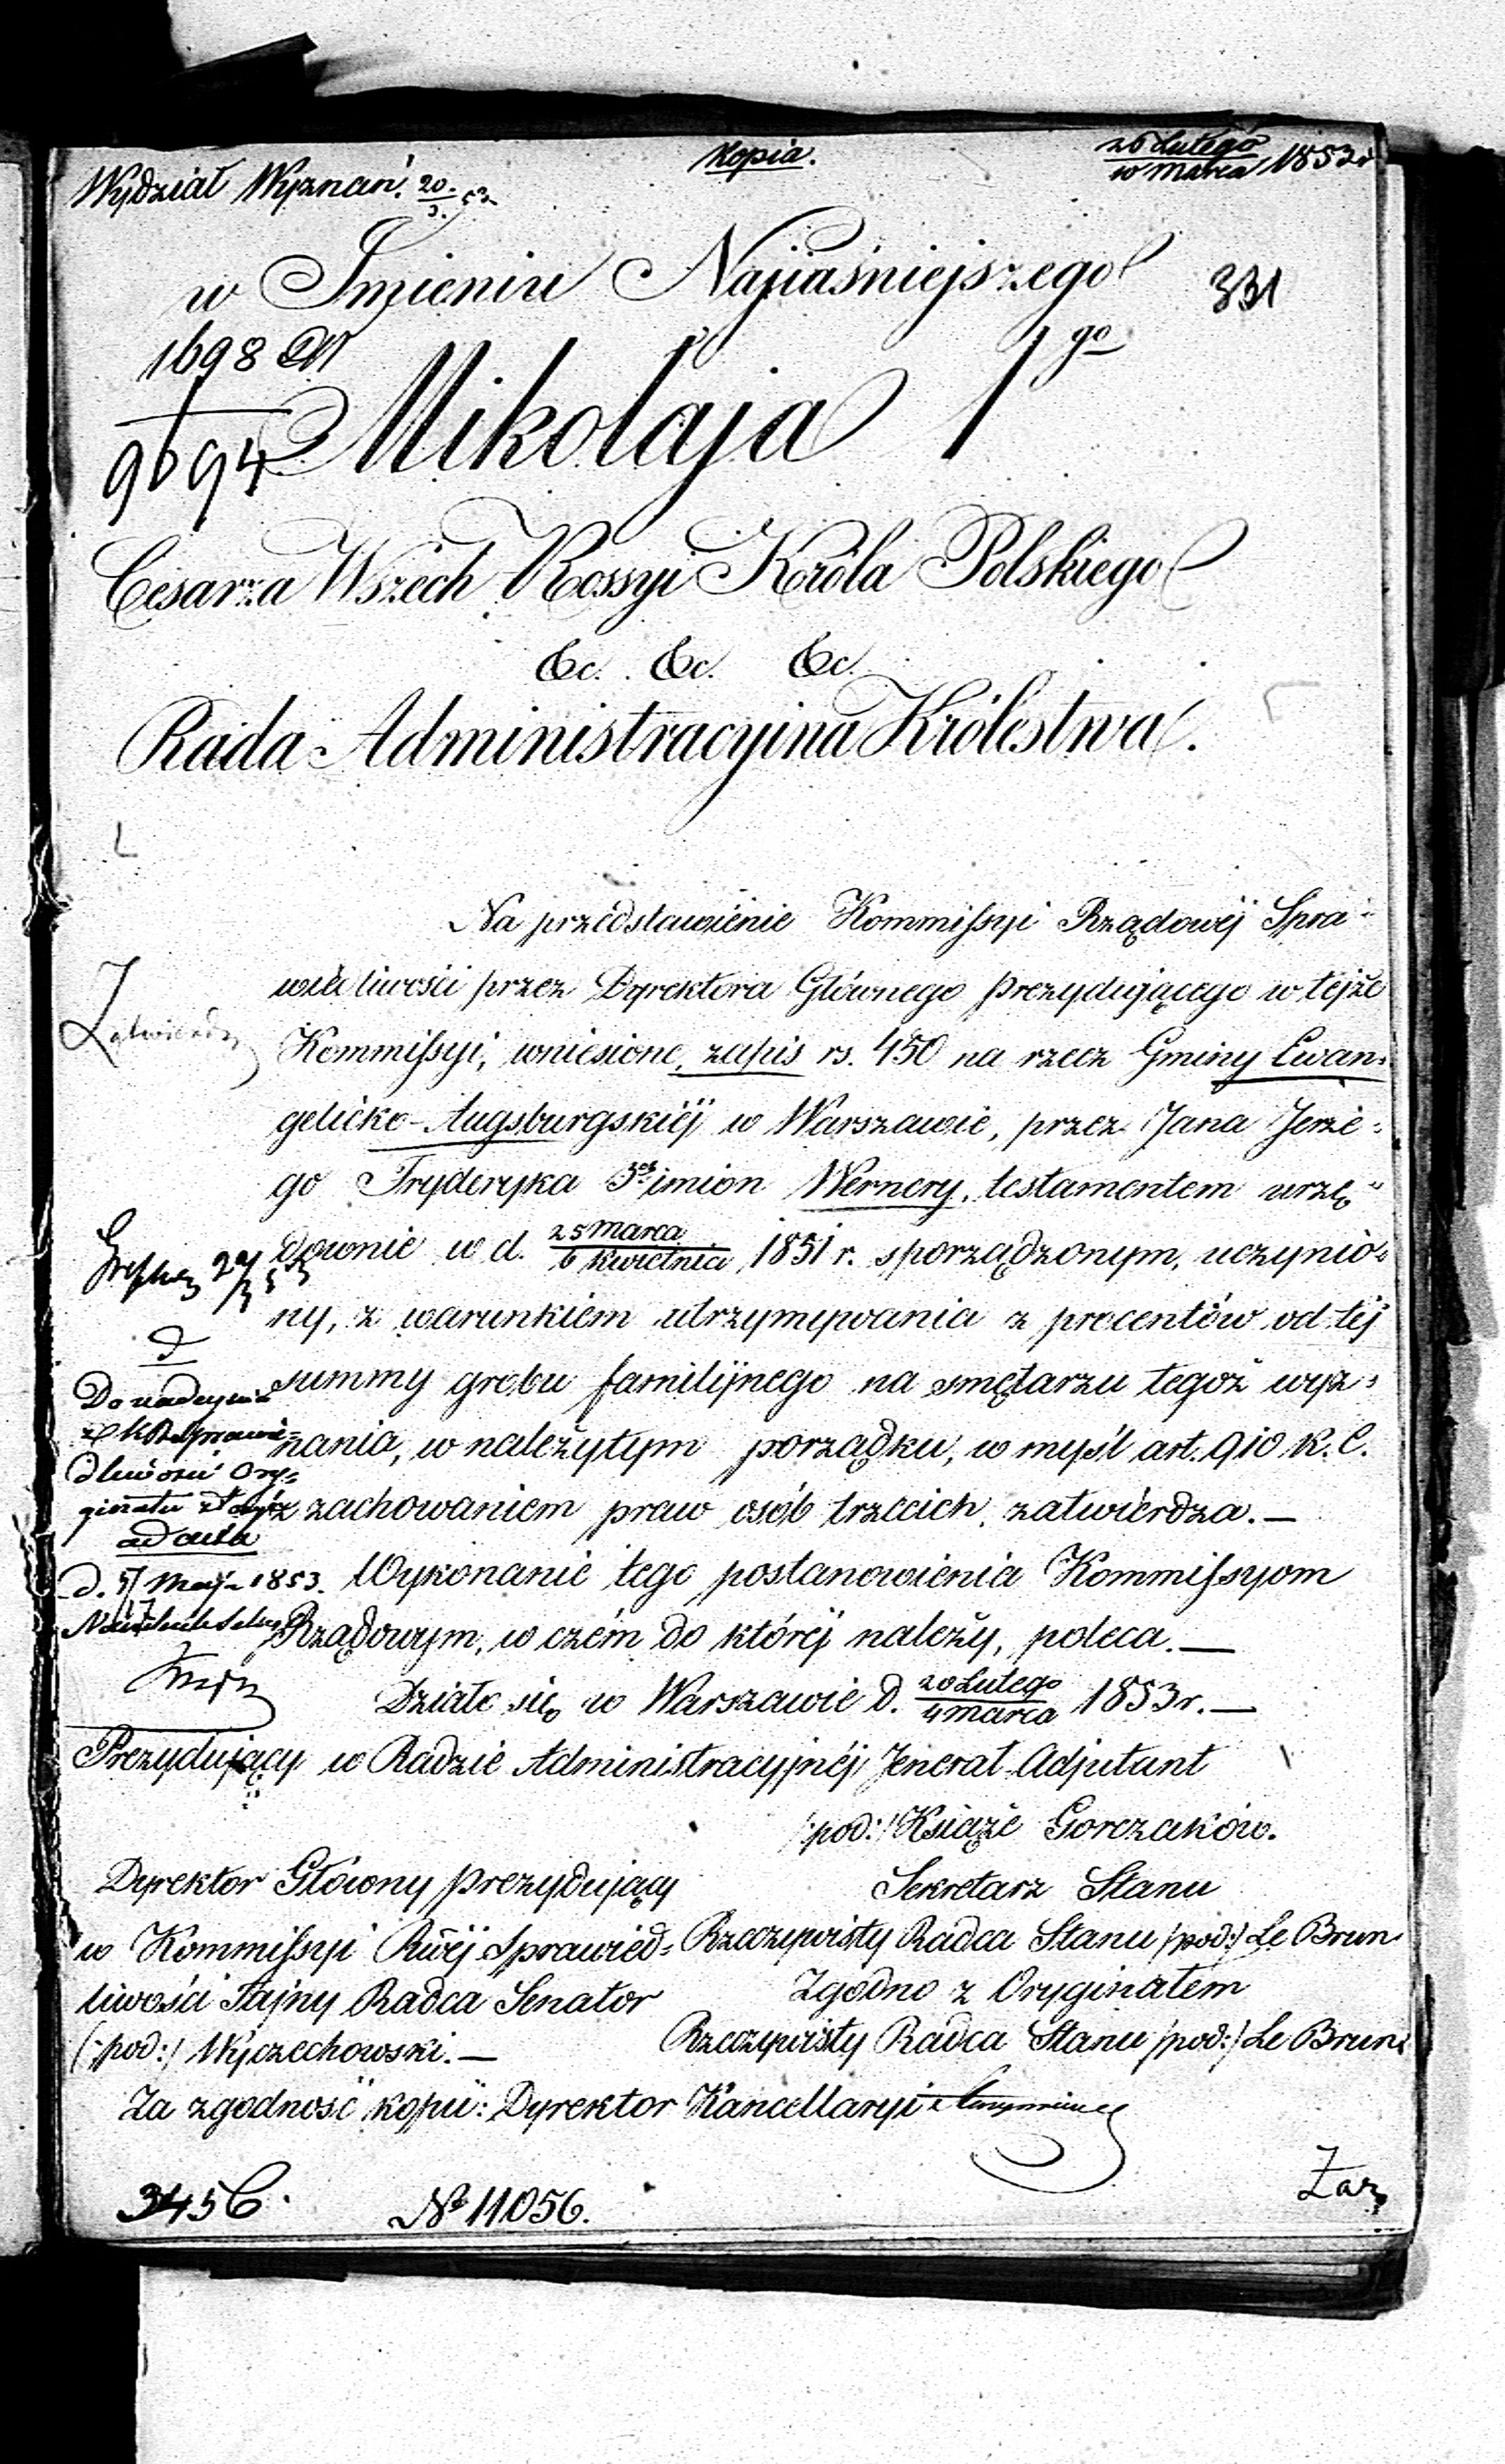 Kopia.
26 Lutego
10 Marca 1853 r
Wydział Wyznań. 20/3. 53
w Imieniu Najjaśniejszego
331
1698
9694
Mikołaja 1go
Cesarza Wszech Rossyi Króla Polskiego
&c. &c. &c.
Rada Administracyjna Królestwa.
Na przedstawienie Kommissyi Rządowéj Spra-
wiedliwości przez Dyrektora Głównego prezydującego w tejże
Kommissyi, wniesione, zapis rs. 450 na rzecz Gminy Ewan-
gelicko-Augsburgskiéj w Warszawie, przez Jana Jerze-
go Fryderyka 3ch imion Wernery, testamentem urzę-
downie w d. 25 Marca / 6 Kwietnia 1851 r. sporządzonym, uczynio-
ny, z warunkiem utrzymywania z procentów od téj
summy grobu familijnego na smętarzu tegoż wyz-
nania, w należytym porządku, w myśl art. 910 K. C.
z zachowaniem praw osób trzecich, zatwierdza.—
Wykonanie tego postanowienia Kommissyom
Rządowym, w czém do któréj należy, poleca.—
Działo się w Warszawie d. 20 Lutego / 4 Marca 1853 r.—
Prezydujący w Radzie Administracyjnéj Jenerał-Adjutant
/:pod:/ Książe Gorczaków.
Dyrektor Główny prezydujący
w Kommissyi Rwéj Sprawied-
liwości Tajny Radca Senator
(:pod:/ Wyczechowski.—
Sekretarz Stanu
Rzeczywisty Radca Stanu /pod:/ Le Brun
Zgodno z Oryginałem
Rzeczywisty Radca Stanu /pod:/ Le Brun
Za zgodność kopii: Dyrektor Kancellaryi
Do nadejścia
z K R Sprawie-
dliwości Ory-
ginału złożyć
ad acta
d. 5/17 Maja 1853.
3456.
No 11056.